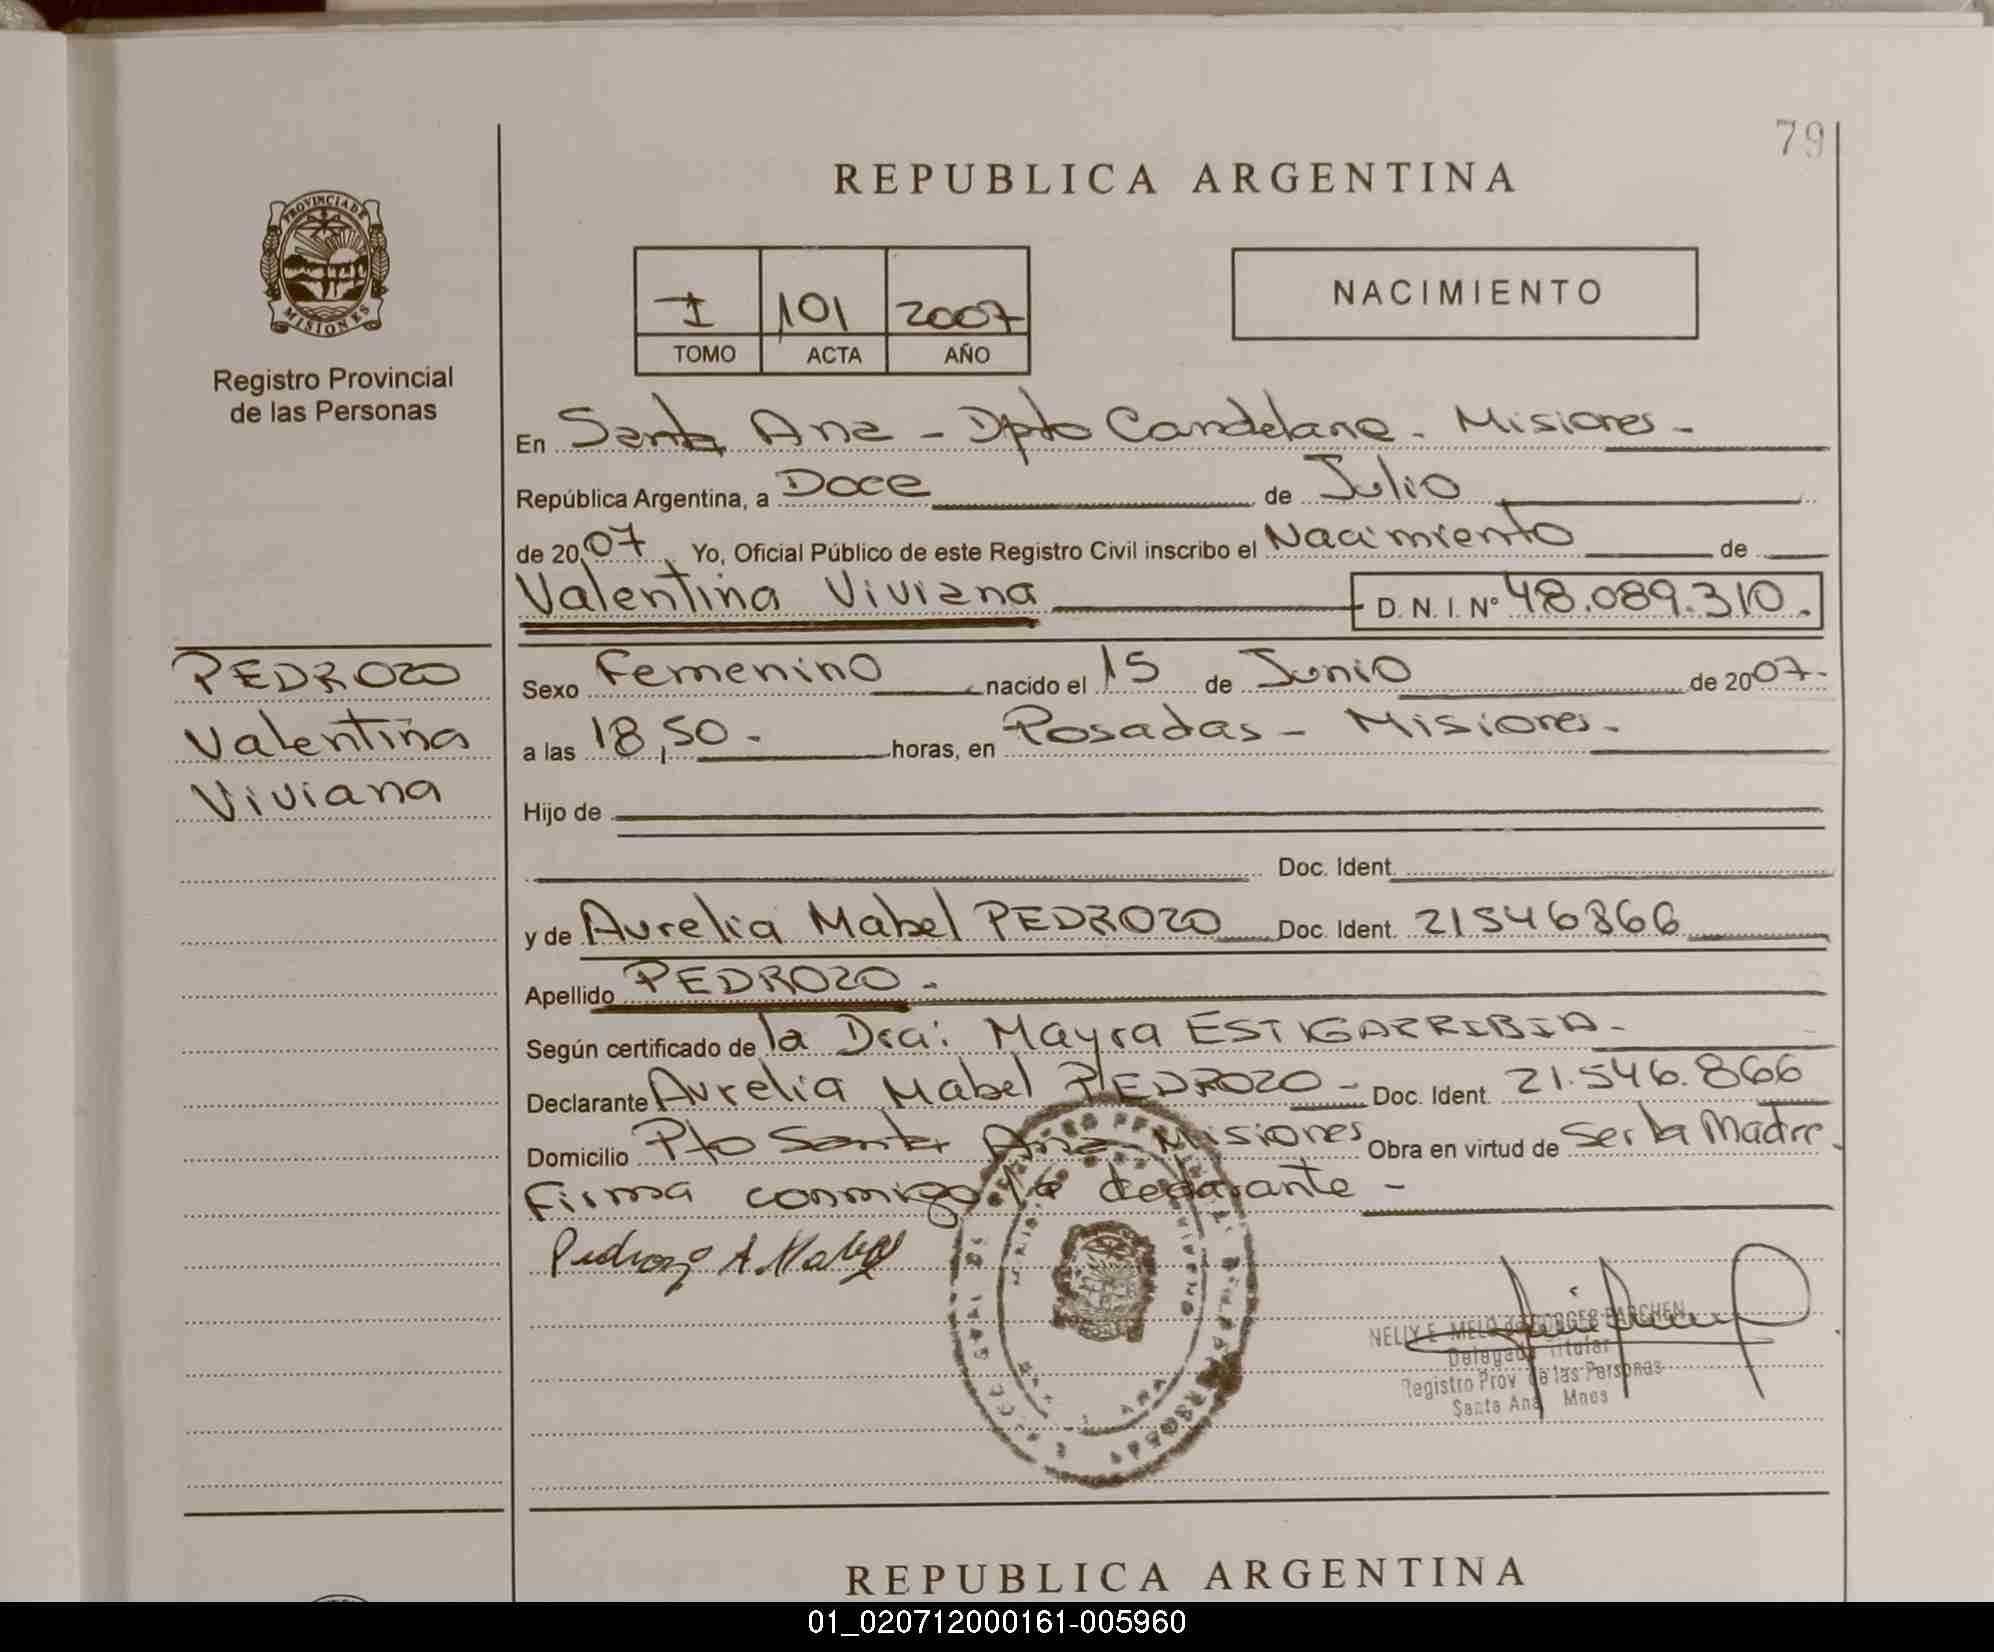 79
REPUBLICA ARGENTINA
PROVINCIA DE
MISIONES
Registro Provincial
de las Personas
I 101 2007
TOMO ACTA AÑO
NACIMIENTO
En Santa Ana - Dpto Candelaria - Misiones -
República Argentina, a Doce de Julio
de 2007 Yo, Oficial Público de este Registro Civil inscribo el Nacimiento de
Valentina Viviana D. N. I. Nº 48.089.310.
PEDROZO
Valentina
Viviana
Sexo Femenino nacido el 15 de Junio de 2007-
a las 18,50 - horas, en Posadas - Misiones -
Hijo de
Doc. Ident.
y de Aurelia Mabel PEDROZO Doc. Ident. 21546866
Apellido PEDROZO -
Según certificado de la Dra: Mayra ESTIGARRIBIA -
Declarante Aurelia Mabel PEDROZO - Doc. Ident. 21.546.866
Domicilio Pto Santa Ana Misiones Obra en virtud de Ser la Madre.
Firma conmigo la declarante -
Pedrozo A. Mabel
NELLY E. MELO de BORGES PARCHEN
Delegada Titular
Registro Prov de las Personas
Santa Ana Mnes
REPUBLICA ARGENTINA
01_020712000161-005960